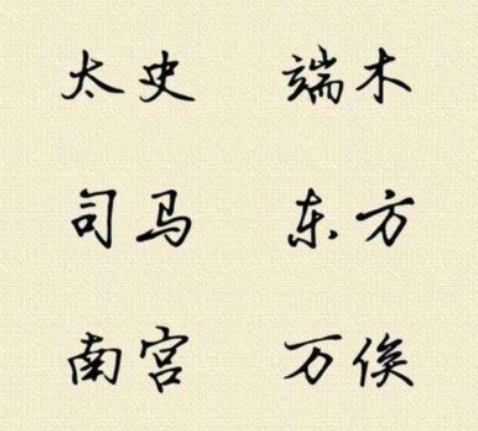 太史 端木
司马 东方
南宫 万俟